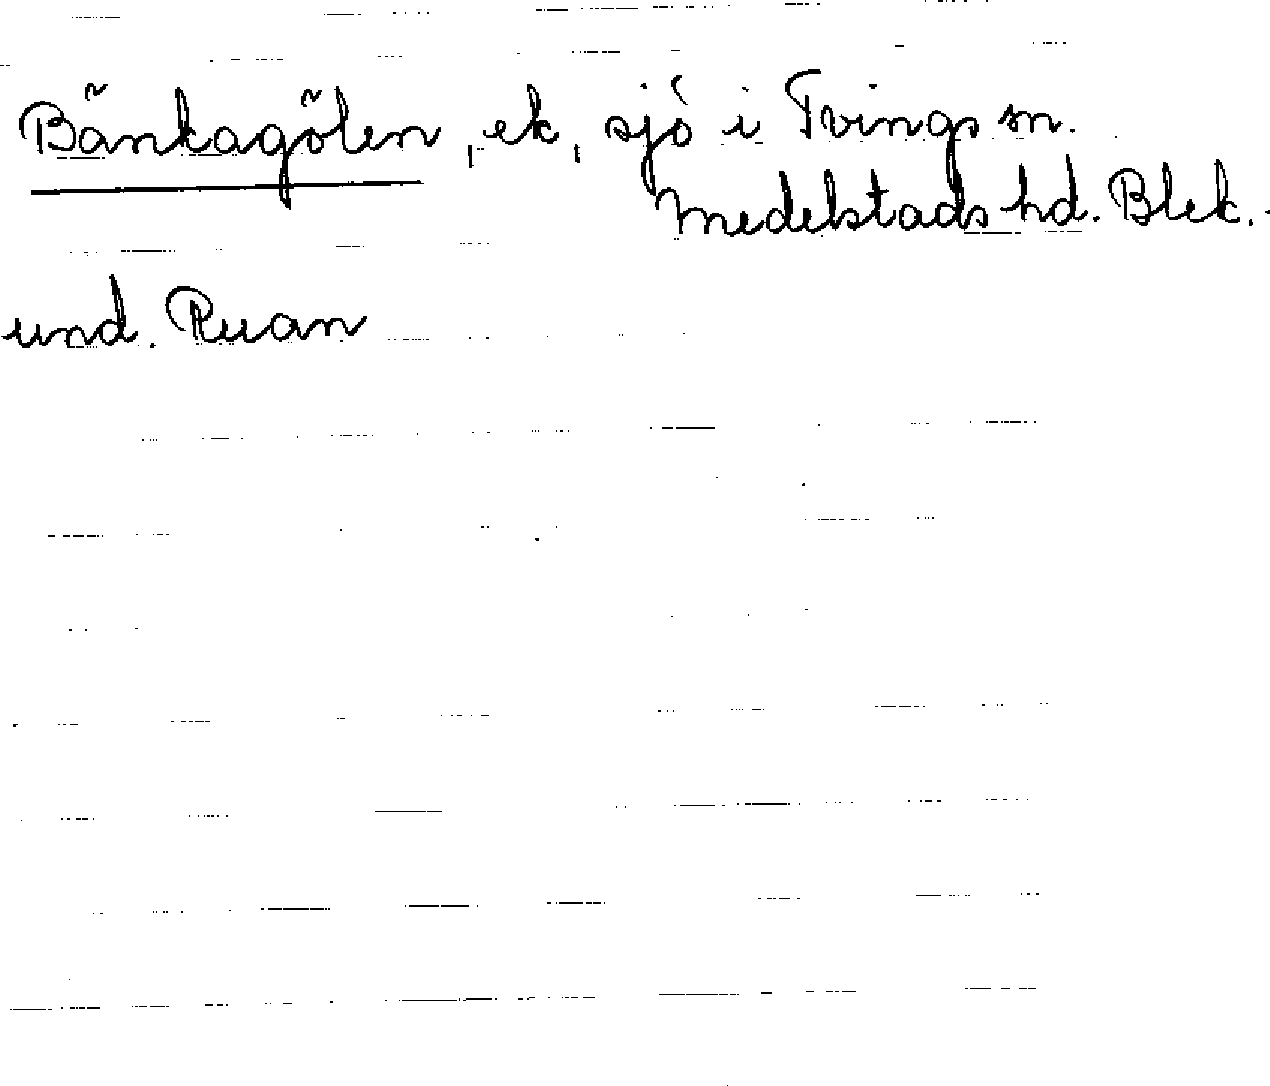 Bänkagölen, ek, sjö i Tvings sn.
Medelstads hd. Blek.
und. Ruan